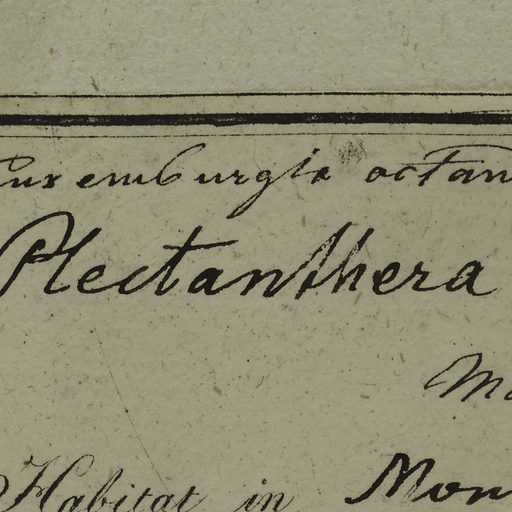 Luxemburgia octan
Plectanthera
Ma
Habitat in Mon